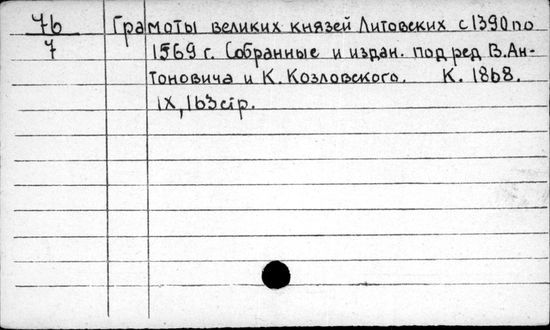 76 Грамоты великих князей Литовских с 1390 по
7 1569 г. Собранные и издан. под ред В. Ан-
тоновича и К. Козловского. К. 1868.
IX, 163 стр.